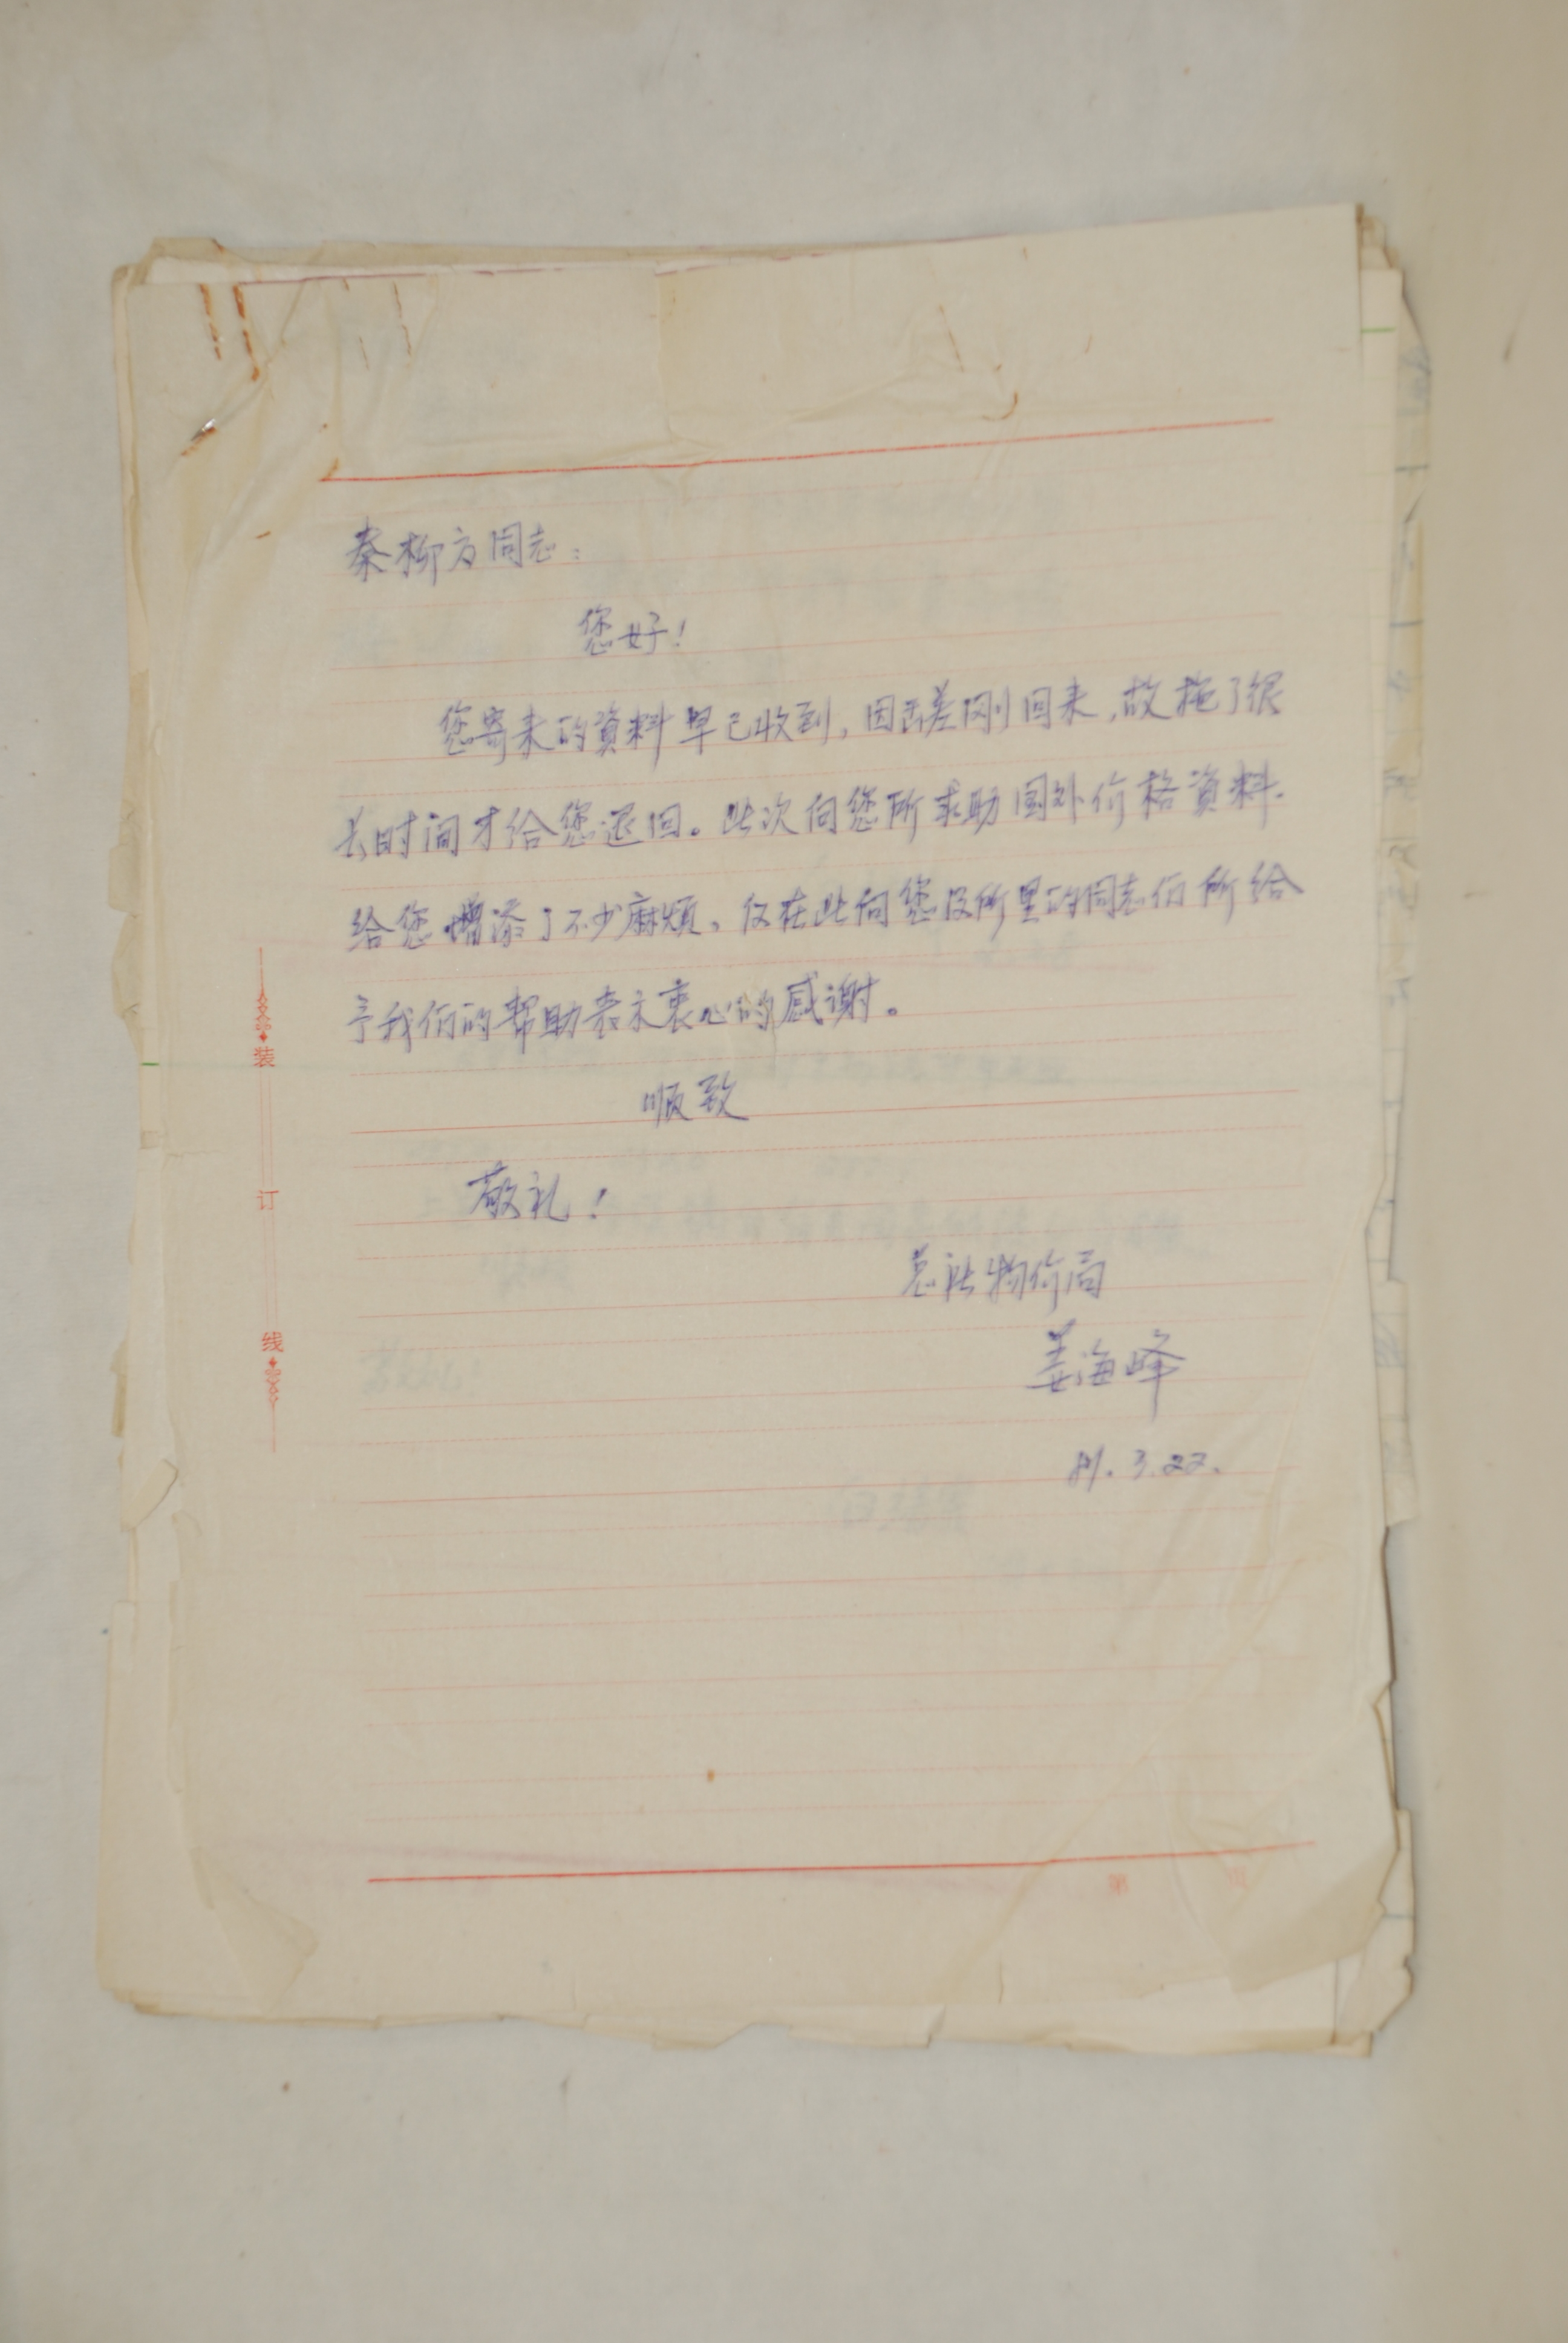 秦柳方同志：
您好！
您寄来的資料早已收到，因出差刚回来，故拖了很
长时间才给您退回。此次向您所求助国外价格資料.
给您增添了不少麻烦。仅在此向您及所里的同志们所给
予我们的帮助表示衷心的感谢。
顺致
敬礼！
总社物价局
姜海峰
81.3.22.
装
订
线
第 页